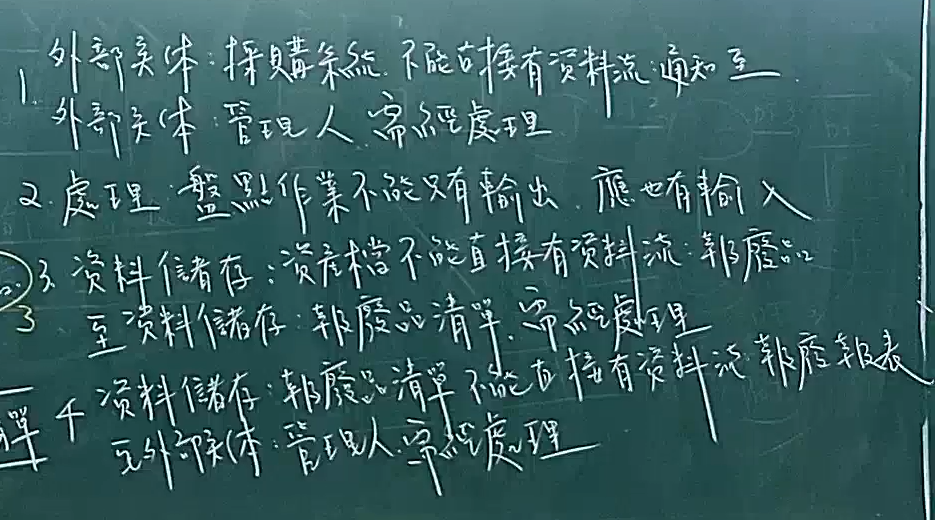 1. 外部实体:採購系統 不能直接有資料流:通知 至
外部实体:管理人 需經處理
2. 處理:盤點作業不能只有輸出、應也有輸入
3. 資料儲存:資產檔不能直接有資料流:報廢品
至資料儲存:報廢品清單、需經處理
4 資料儲存:報廢品清單不能直接有資料流 報廢報表
至外部实体:管理人、需經處理
3
單